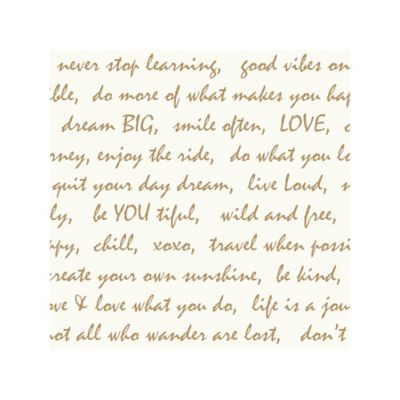 never stop learning, good vibes on
ble, do more of what makes you hap
dream BIG, smile often, LOVE, c
rney, enjoy the ride, do what you lo
quit your day dream, live Loud, n
ly, be YOU tiful, wild and free,
ppy, chill, xoxo, travel when possi
create your own sunshine, be kind,
ve & love what you do, life is a jou
not all who wander are lost, don't